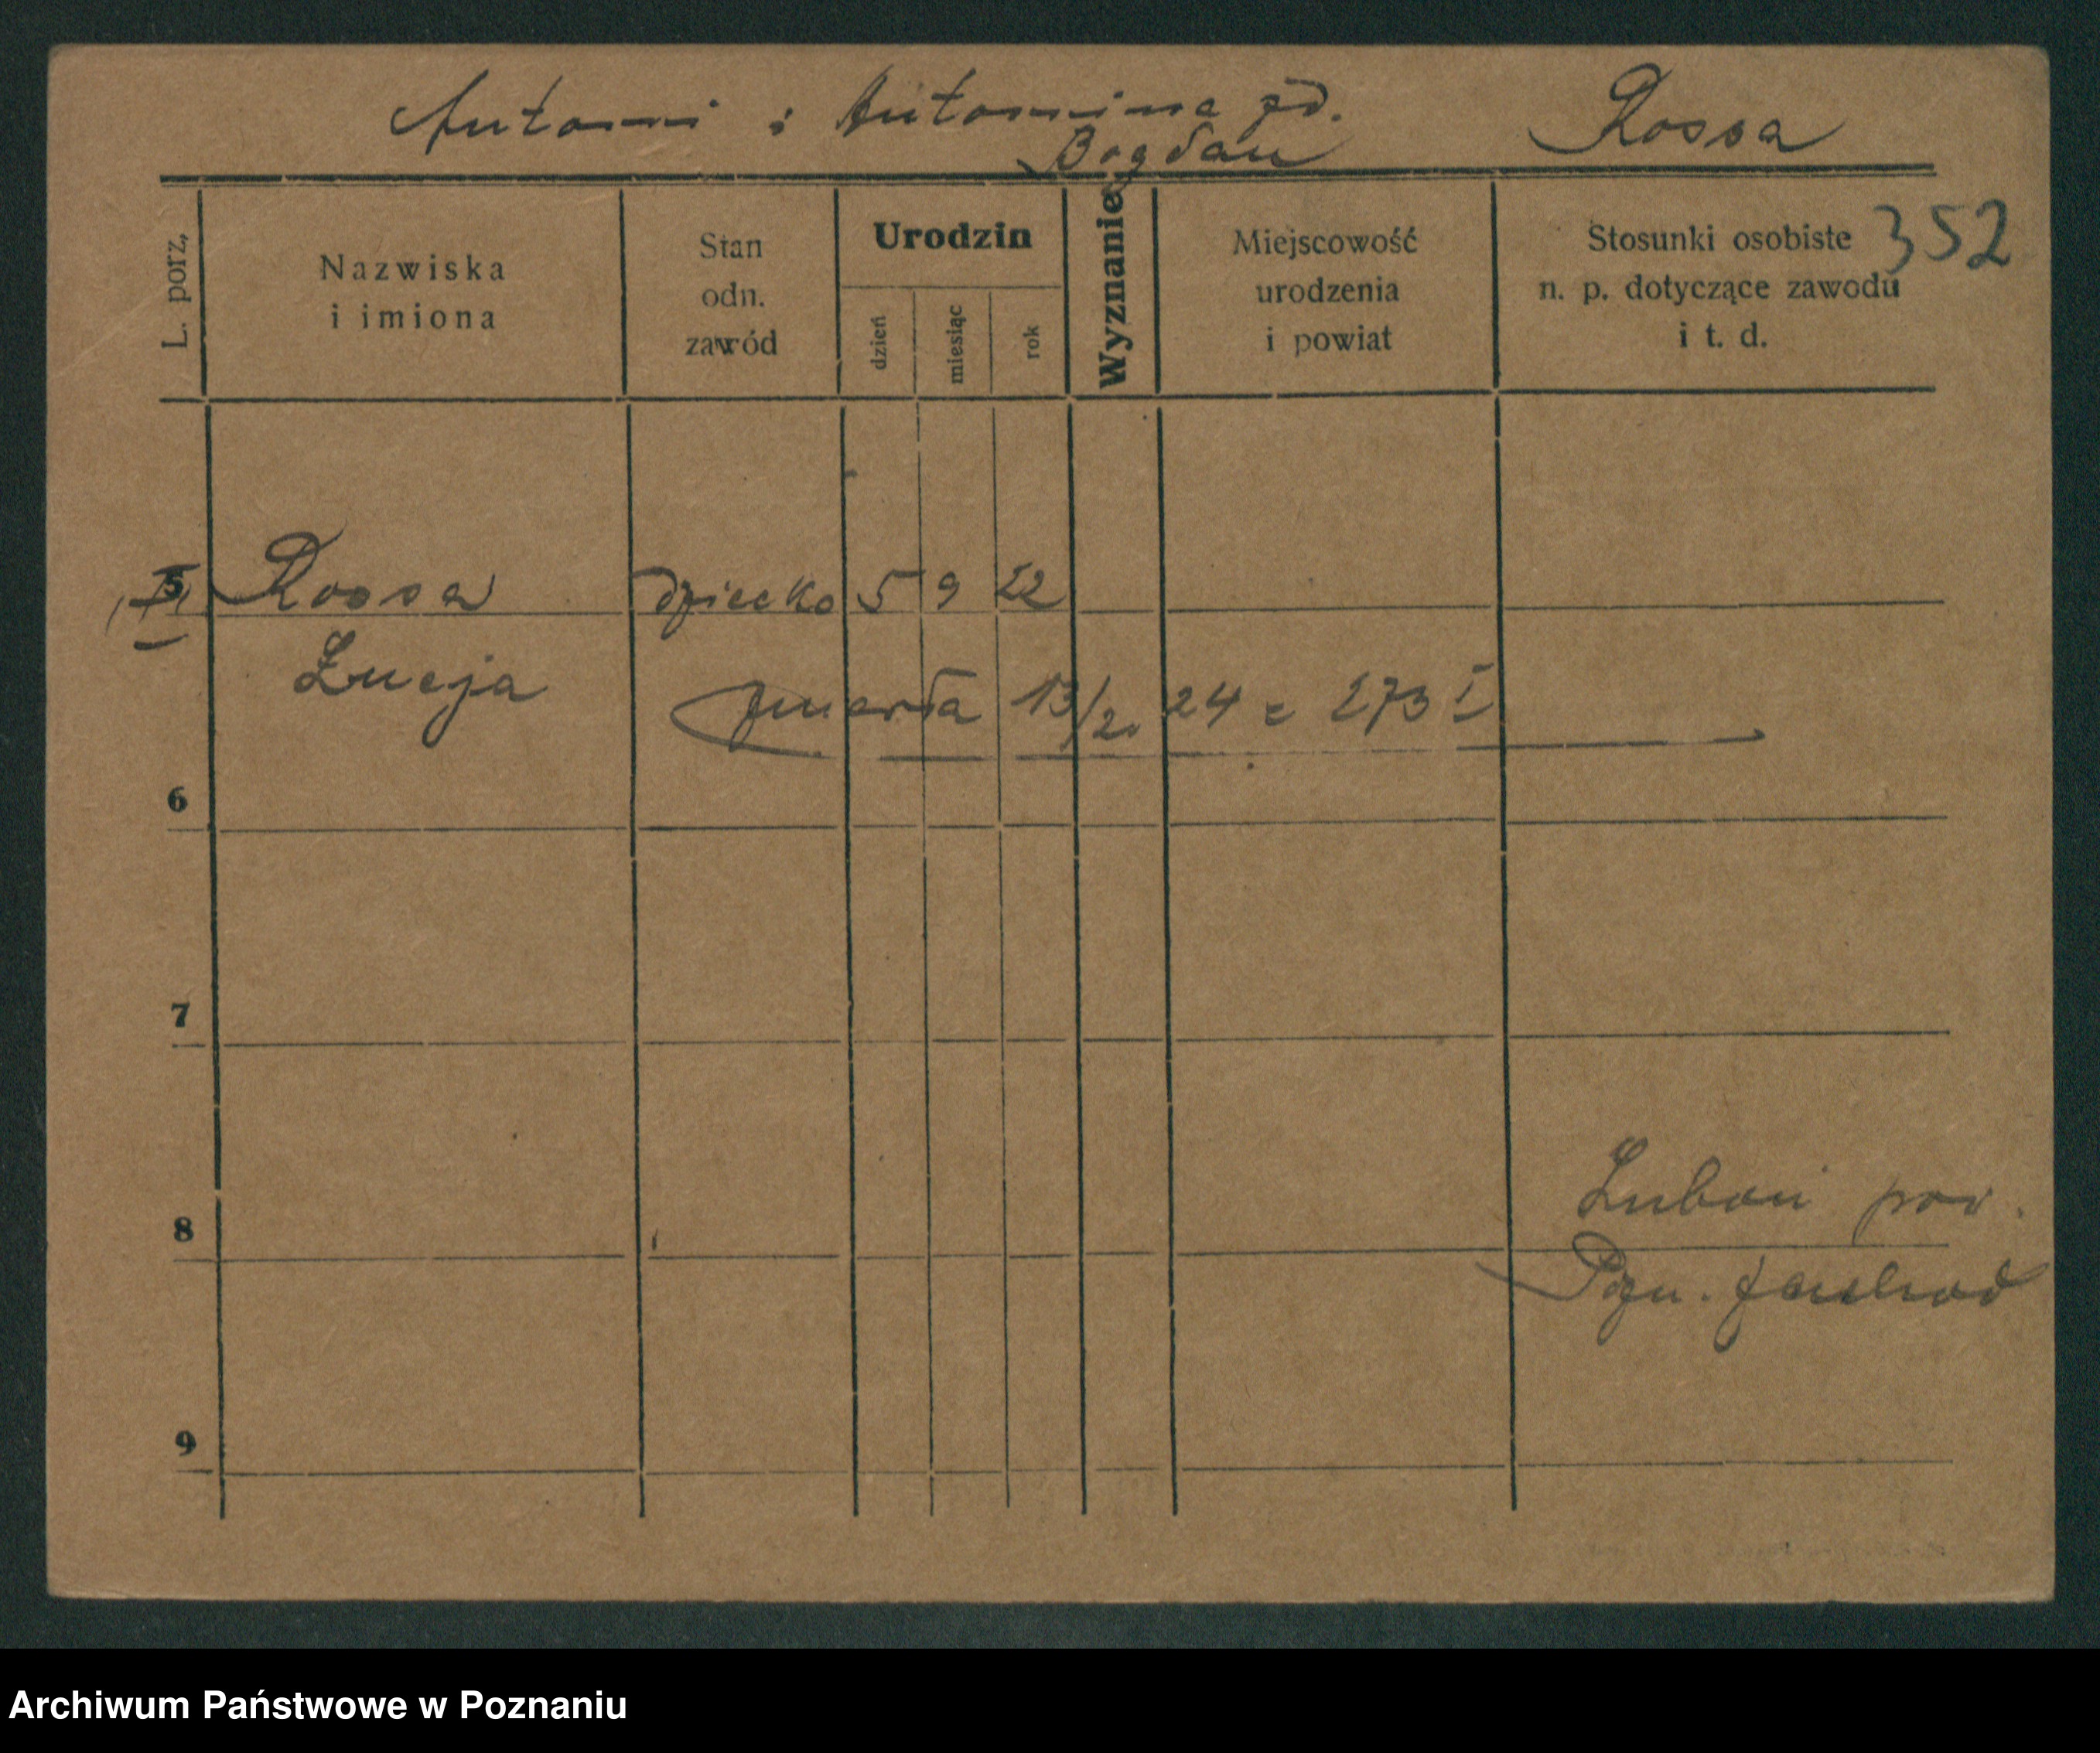 Antoni i Antonina zd. Rossa
Bogdan
L. porz.
Nazwiska
i imiona
Stan
odn.
zawód
Urodzin
dzień
miesiąc
rok
Wyznanie
Miejscowość
urodzenia
i powiat
Stosunki osobiste
n. p. dotyczące zawodu
i t. d.
352
5 Rossa dziecko 5 9 22
Łucja
zmarła 13/2. 24 = 273 I
6
7
8
Luboń pow.
Pozn. zachod
9
Archiwum Państwowe w Poznaniu